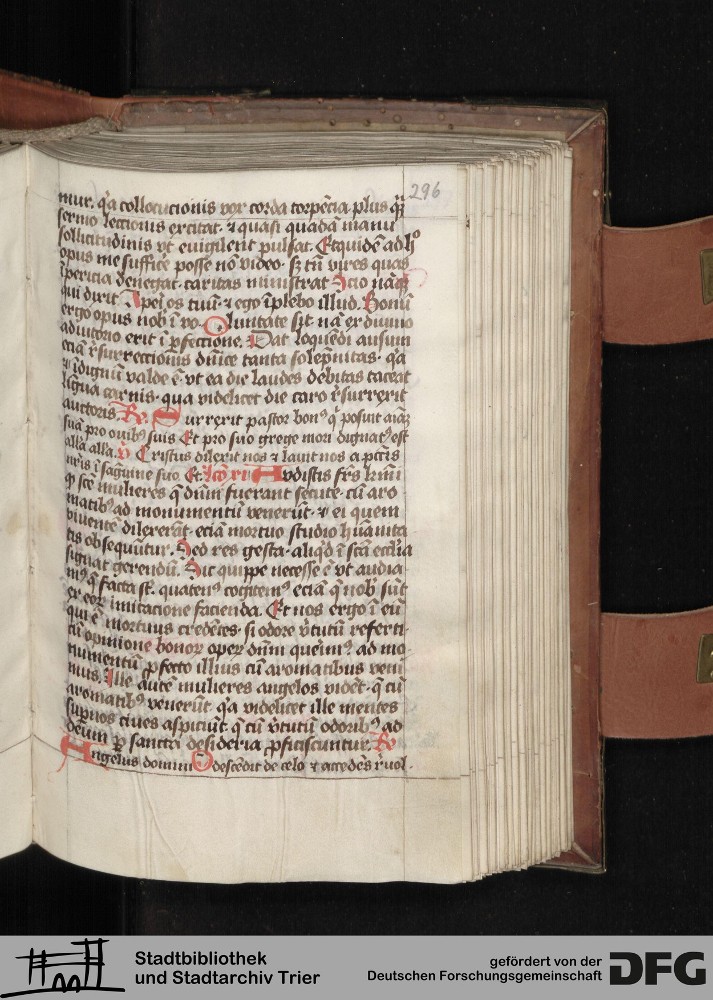 296
mur. q̓a collocucionis vox corda torpēcia plus q̄ȝ
sermo lectionis excitat. ⁊ quasi quadā manu
sollicitudinis vt euigilent pulsat. Et quidē ad hᵒ
opus me sufficē posse nō video. sꝫ tn̄ vires quas
īpericia denegat. caritas ministrat Scio nāqꝫ
qui dixit Aperi os tuū. ⁊ ego īplebo illud. Bonū
ergo opus nob̄ ī vo Oluntate sit. nā ex diuino
adiutorio erit ī pfectione. Dat loquēdi ausum
eciā r̄surrectionis dn̄ice tanta solēpnitas. q̓a
⁊ īdignū valde ē. vt ea die laudes debitas taceat
ligua carnis. qua videlicet die caro r̄surrexit
auctoris. R̄ Surrexit pastor bonꝰ q̓ posuit aīaȝ
suā pro ouibꝰ suis Et pro suo grege mori dignatꝰ est
all'a all'a. v̄ Cristus dilexit nos ⁊ lauit nos a pctīs
nr̄is ī sagwine suo. Et Lcō Audistis frs̄ kmī
ꝙ scē mulieres q̄ dūm fuerant secute. cū aro
matibꝰ ad monumentū venerūt. ⁊ ei quem
viuentē dilexerāt. eciā mortuo studio hūanita
tis obsequūtur. Sed res gesta. aliqd ī scā ecclīa
signat gerendū. Sic quippe necesse ē vt audia
mꝰ q̄ facta st̄. quatenꝰ cogitemꝰ eciā q̄ nob̄ sūt
ex eoꝝ imitacione facienda. Et nos ergo ī eū
qui ē mortuus credētes. si odore v̄tutū referti.
cū opinione bonoꝝ operꝝ dūm querimꝰ. ad mo
numentū ꝓfecto illius cū aromatibus veni
mus. Ille autē mulieres angelos vidēt. q̄ cū
aromatibꝰ venerūt. q̓a videlicet ille mentes
supnos ciues aspiciūt. q̄ cū v̄tutū odoribꝰ ad
deum ꝑ sancta desideria ꝓficiscuntur. R̄
Angelus domini descēdit de celo ⁊ accedēs r̄uol
Stadtbibliothek
und Stadtarchiv Trier
gefördert von der
Deutschen Forschungsgemeinschaft
DFG